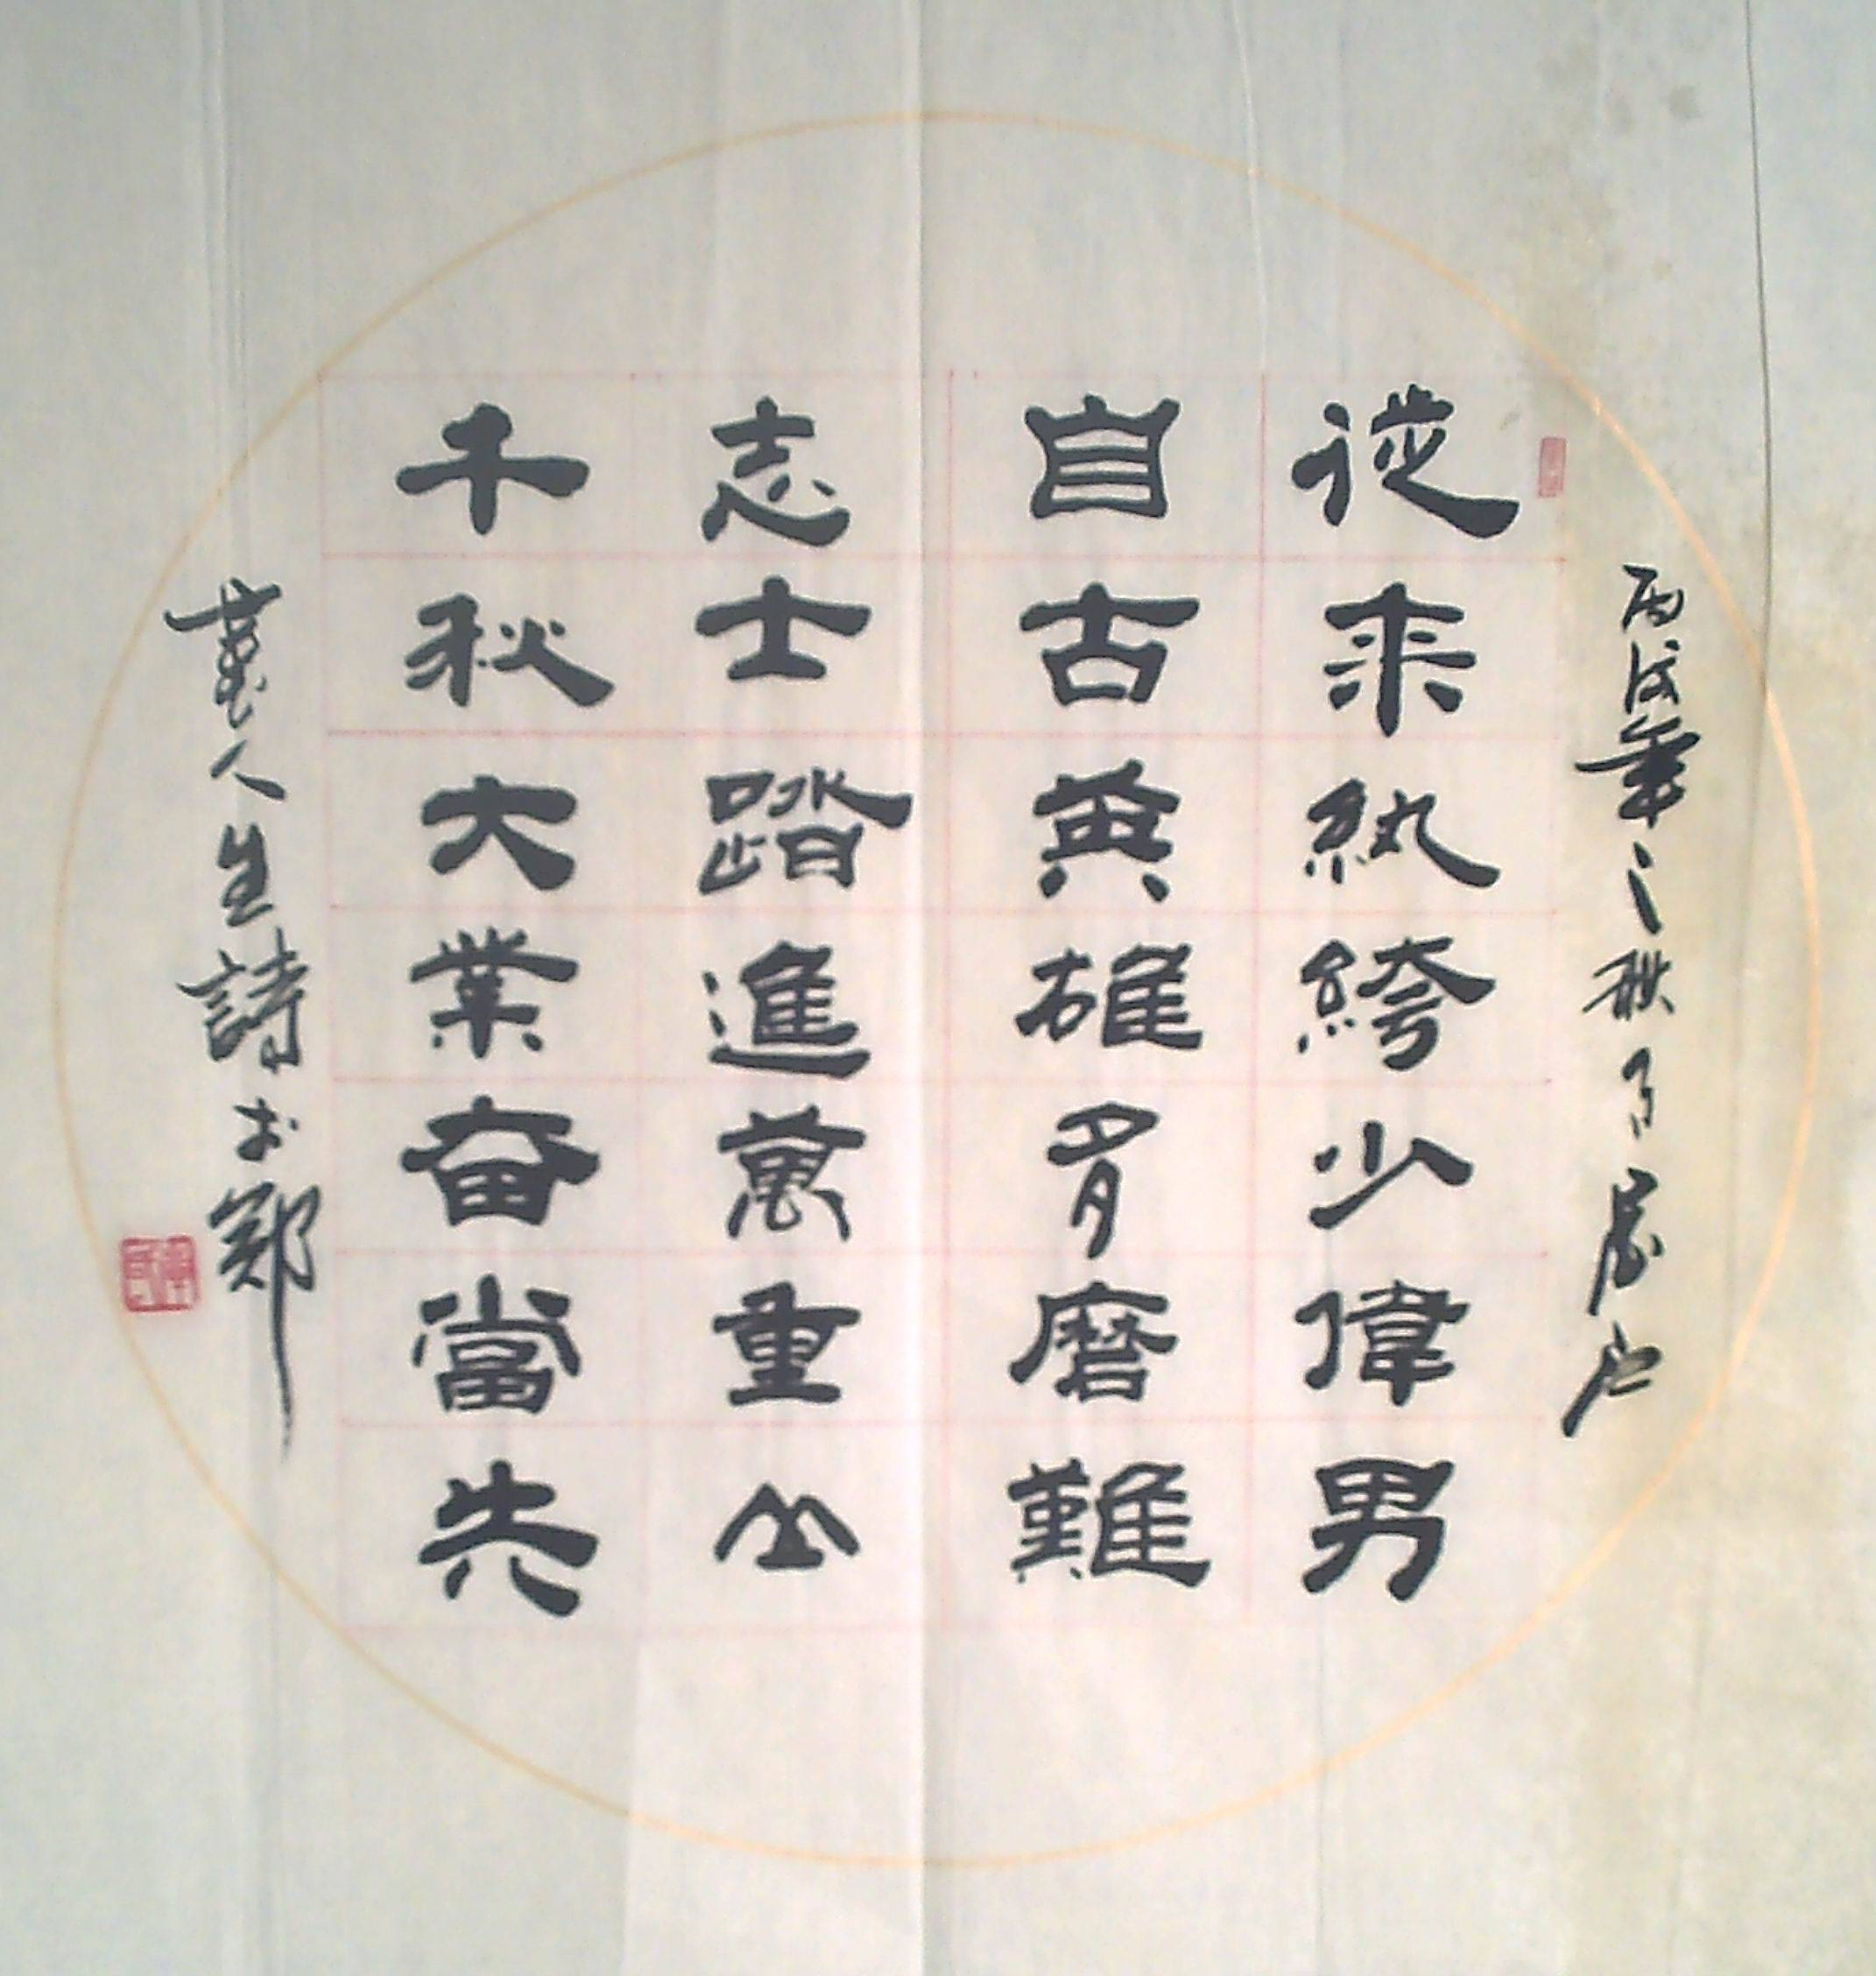 丙戌年之秋月晨江
從来紈絝少偉男
自古英雄多磨難
志士踏進萬重山
千秋大業奋當先
書人生詩於鄭